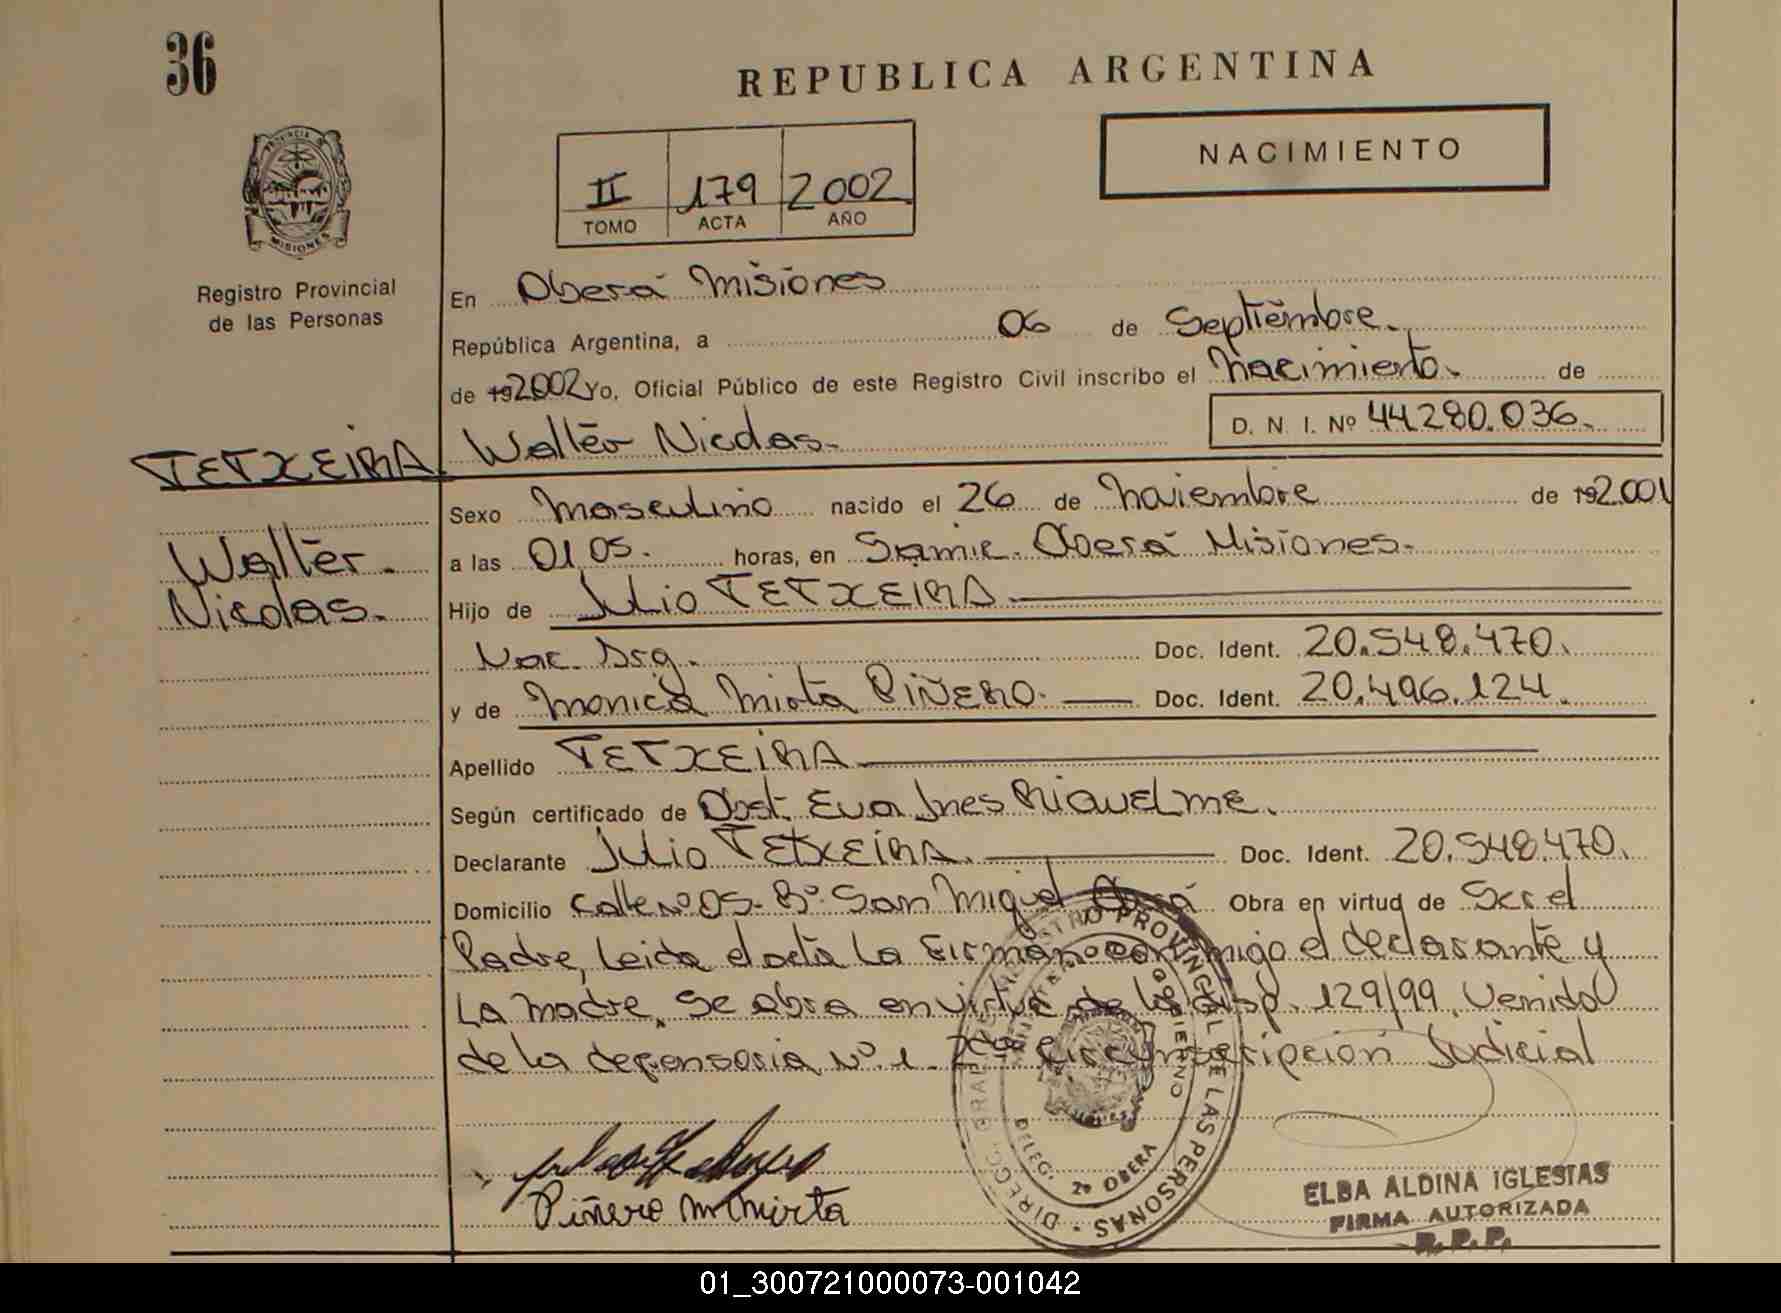 36
REPUBLICA ARGENTINA
NACIMIENTO
PROVINCIA DE
MISIONES
II 179 2002
TOMO ACTA AÑO
Registro Provincial
de las Personas
En Oberá Misiones
República Argentina, a 06 de Septiembre.
de 192002 Yo, Oficial Público de este Registro Civil inscribo el Nacimiento. de
D. N. I. Nº 44.280.036.
TETXEIRA. Walter Nicolas.
Sexo Masculino nacido el 26 de Noviembre de 192.001
Walter.
Nicolas.
a las 01 05. horas, en Samic. Oberá Misiones.
Hijo de Julio TETXEIRA
Nac. Arg. Doc. Ident. 20.548.470.
y de Monica Mirta PIÑERO. Doc. Ident. 20.496.124.
Apellido TETXEIRA
Según certificado de Obst. Eva Ines Riquelme.
Declarante Julio TETXEIRA. Doc. Ident. 20.548.470.
Domicilio Calle Nº 05. Bº San Miguel Oberá Obra en virtud de Ser el
Padre, Leida el acta La Firman conmigo el declarante y
La Madre. Se obra en virtud de la disp. 129/99. Venido
de la defensoria Nº 1. 2da Circunscripcion Judicial
DIRECC. GRAL. DEL REGISTRO PROVINCIAL DE LAS PERSONAS
GOBIERNO
DELEG. 2º OBERA
Piñero M Mirta
ELBA ALDINA IGLESIAS
FIRMA AUTORIZADA
R.P.P.
01_300721000073-001042